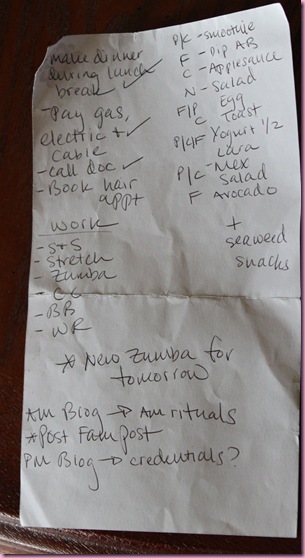 make dinner
during lunch
break ✓
- Pay gas,
electric + ✓
cable
- call doc ✓
- Book hair
appt
work
- S+S
- Stretch
- Zumba
- CC
- BB
- WR
P/C - smoothie
F - Dip AB
C - Applesauce
N - Salad
F/P Egg
C Toast
P/C/F Yogurt 1/2
Lara
P/C - Mex
Salad
F Avocado
+
seaweed
snacks
* New Zumba for
tomorrow
Am Blog → Am rituals
*Post Fam post
PM Blog → credentials?